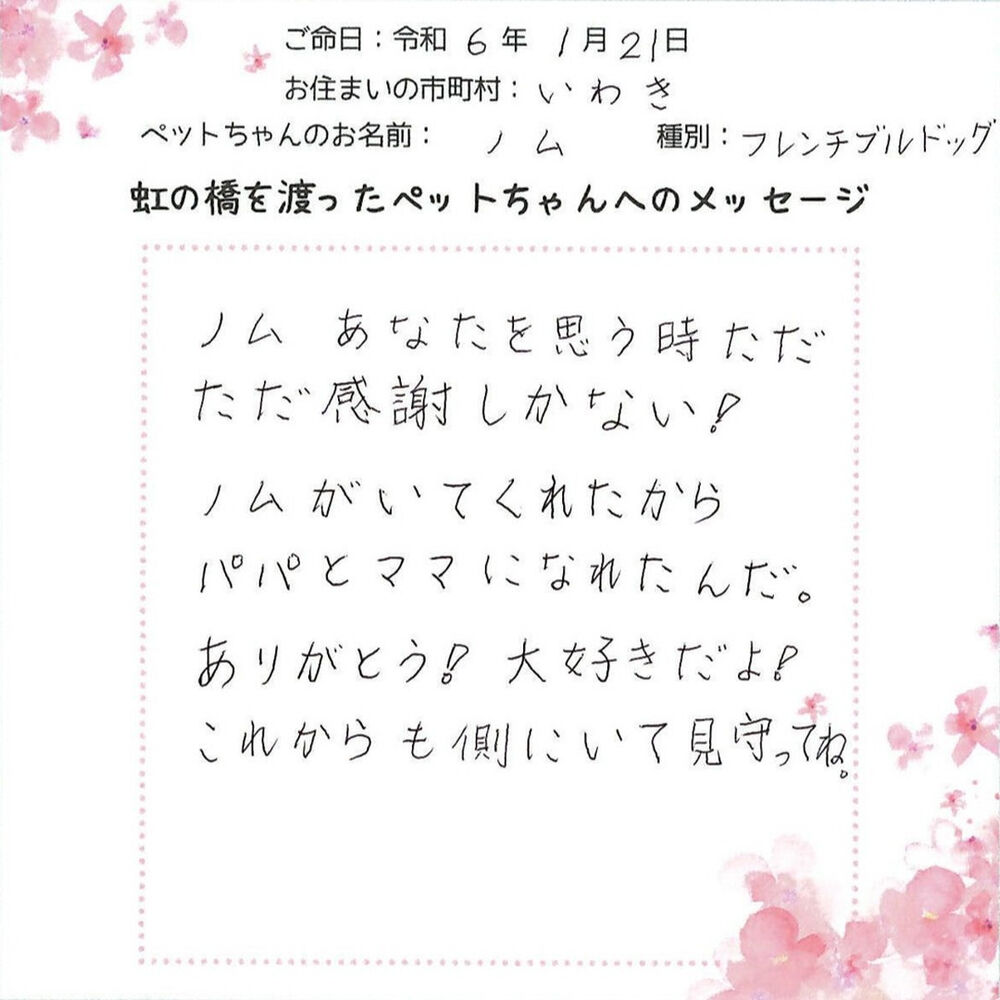 ご命日：令和 6年 1月21日
お住まいの市町村：いわき
ペットちゃんのお名前： ノム 種別：フレンチブルドッグ
虹の橋を渡ったペットちゃんへのメッセージ
ノム あなたを思う時ただ
ただ感謝しかない!
ノムがいてくれたから
パパとママになれたんだ。
ありがとう! 大好きだよ!
これからも側にいて見守ってね。